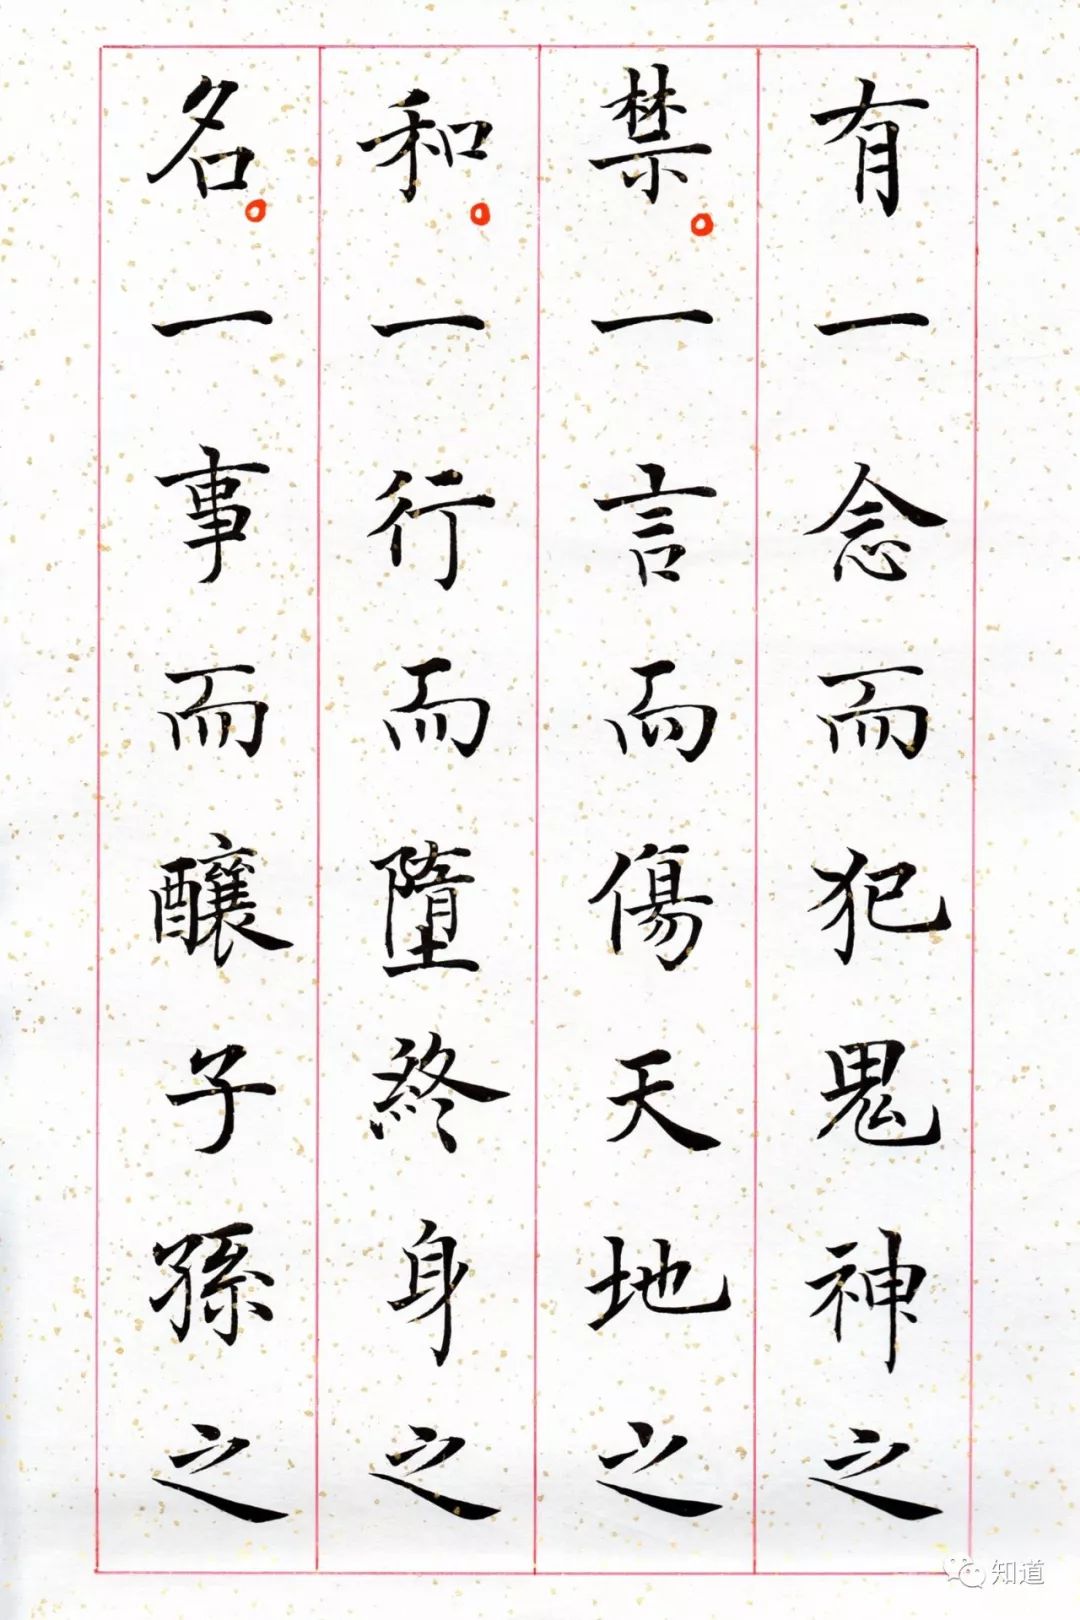 有一念而犯鬼神之
禁。一言而傷天地之
和。一行而墮終身之
名。一事而釀子孫之
知道